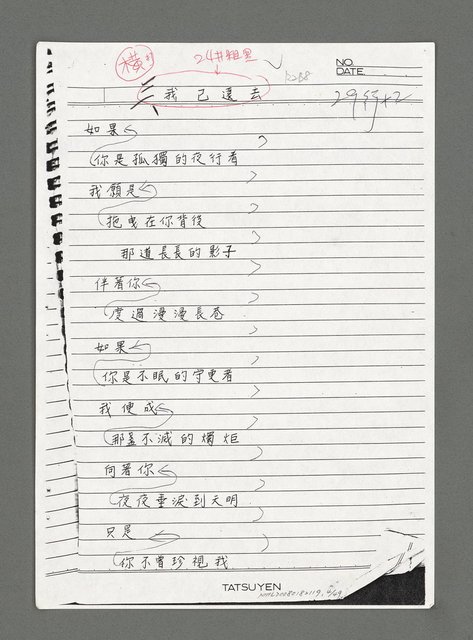 橫
24#粗黑
NO.
DATE.
三、我已遠去
如果
你是孤獨的夜行者
我願是
拖曳在你背後
那道長長的影子
伴著你
度過漫漫長巷
如果
你是不眠的守更者
我便成
那盞不滅的燭炬
向著你
夜夜垂淚到天明
只是
你不曾珍視我
TATSUYEN